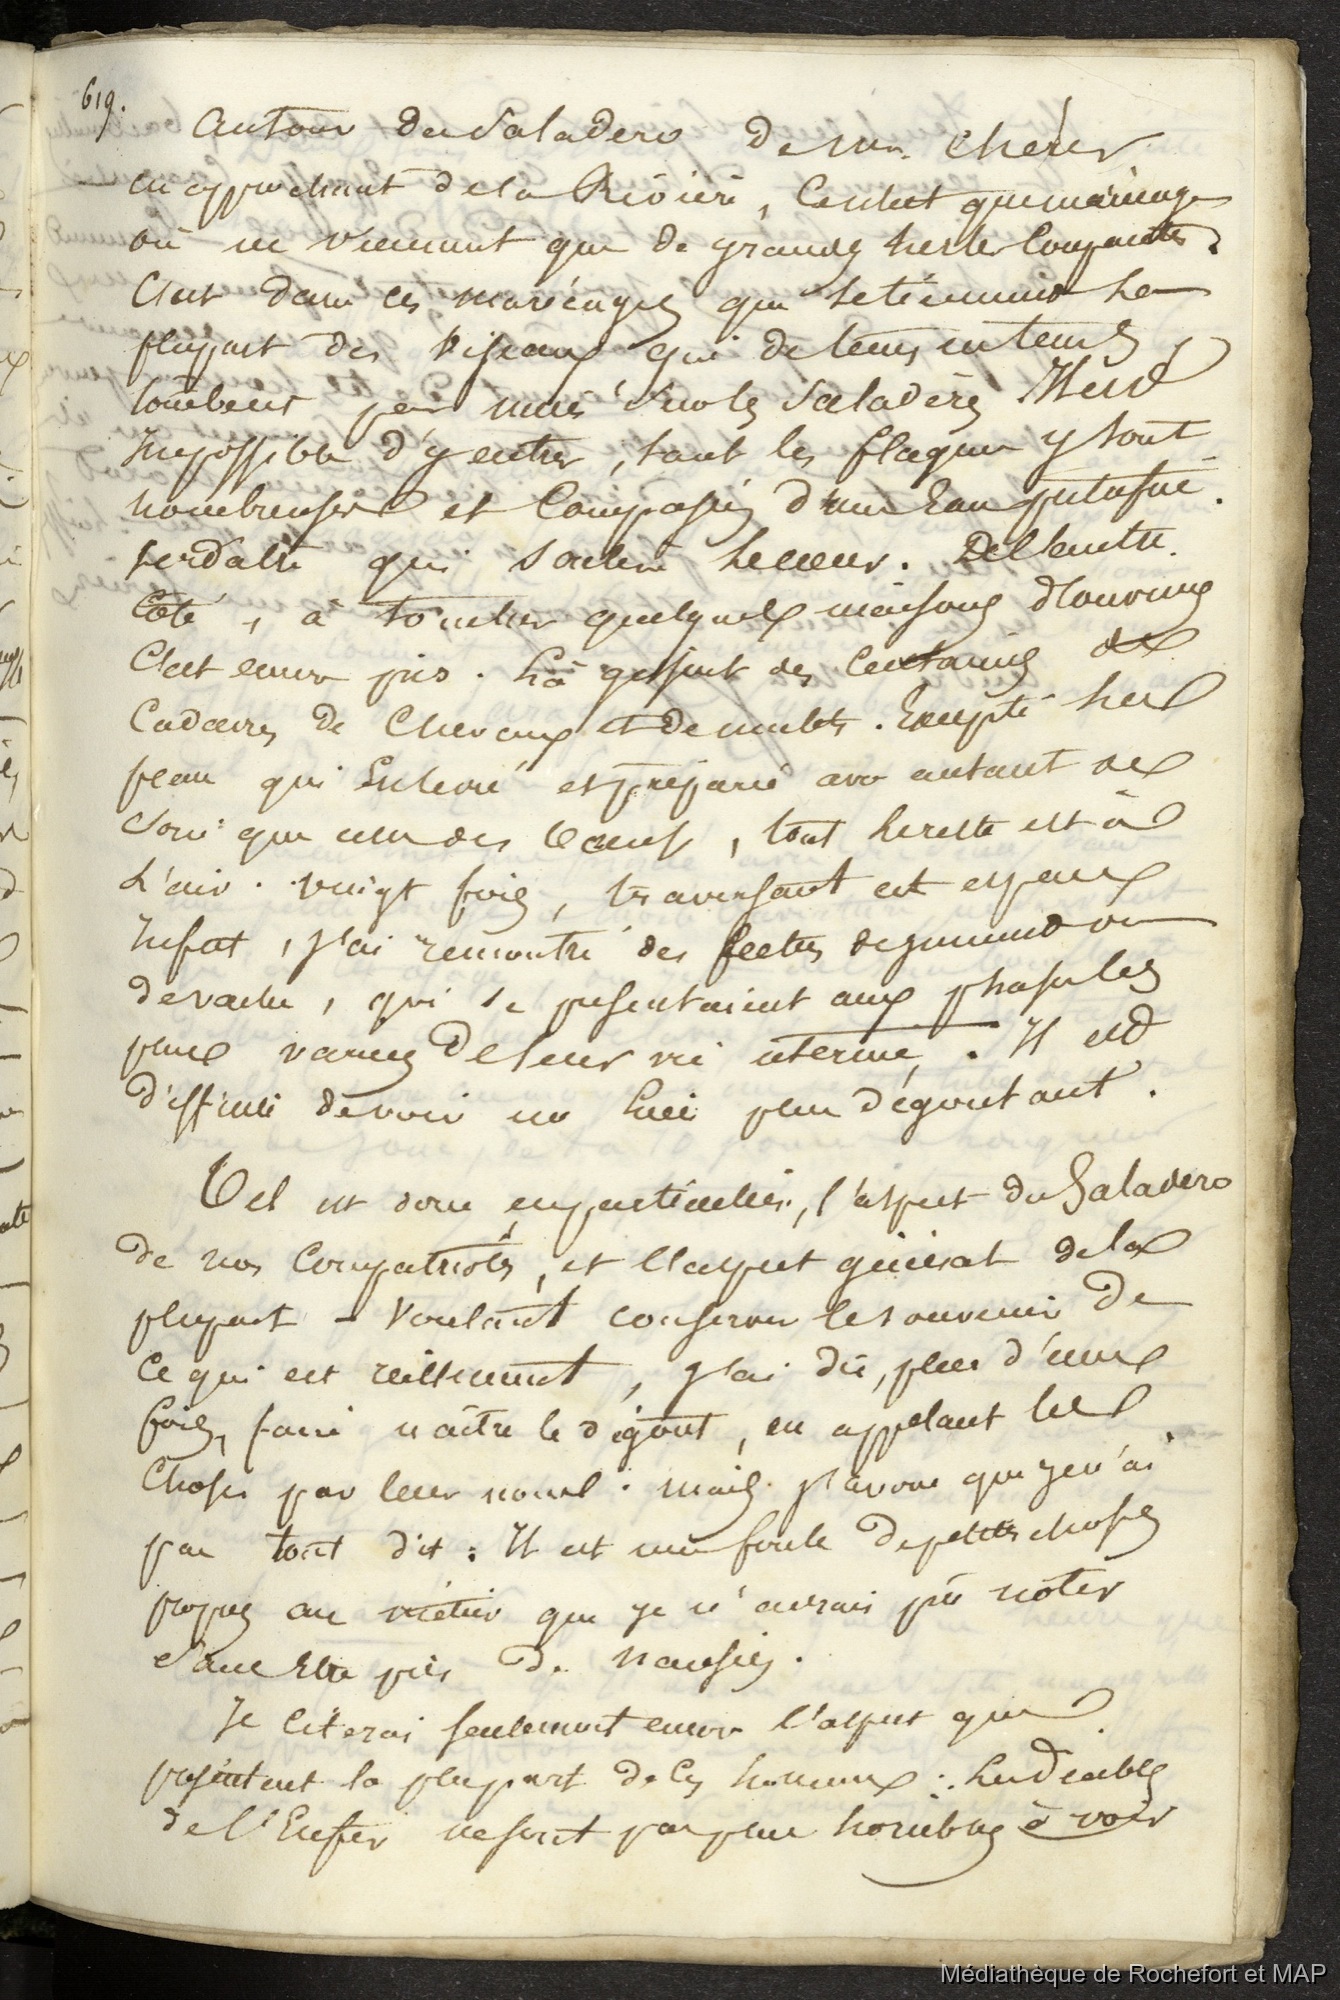 619.
Autour du Saladero de Mr. Chérer
en approchant de la Rivière, Ce n'est que marécage
où ne viennent que de grandes herbes Coupantes.
C'est dans ces marécages que se tiennent la
plupart des Oiseaux qui de tems en tems
tombent par nuée sur les Saladères Il est
Impossible d'y entrer, tant les flaques y sont
nombreuses et Composées d'une Eau putréfiée.
verdatre qui soulève le cœur. De l'autre
Côté, à toucher quelques maisons d'ouvriers
C'est encore pis. Là gissent des Centaines de
Cadavres de Chevaux et de mulets. Excepté la
peau qui Enlevée est préparée avec autant de
soin que celle des Bœufs, tout le reste est à
L'air. vingt fois, traversant cet espace
Infect, J'ai rencontré des fœtus de jument ou
de vache, qui se présentaient aux phases les
plus variées de leur vie utérine. Il est
difficile de voir un lieu plus dégoutant.
Tel est donc en particulier, l'aspect du Saladero
de nos Compatriotes, et l'aspect général de la
plupart - Voulant conserver le souvenir de
Ce qui est réellement, J'ai dû, plus d'une
fois, faire naître le dégout, en appelant les
Choses par leur nom. mais j'avoue que je n'ai
pas tout dit : Il est une foule de petites choses
propres au métier que je n'aurais pû noter
sans Etre pris de nausées.
Je Citerai seulement encore l'aspect que
présentent la plupart de Ces hommes : Les Diables
de l'Enfer ne sont pas plus horribles à voir
Médiathèque de Rochefort et MAP